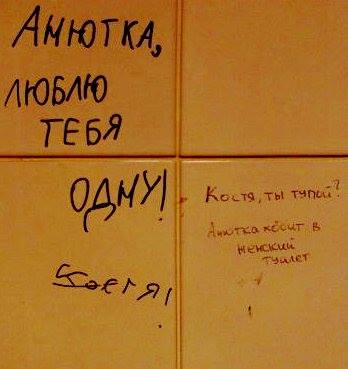 Анютка,
люблю
тебя
одну!
Костя!
Костя, ты тупой?
Анютка ходит в
женский
туалет